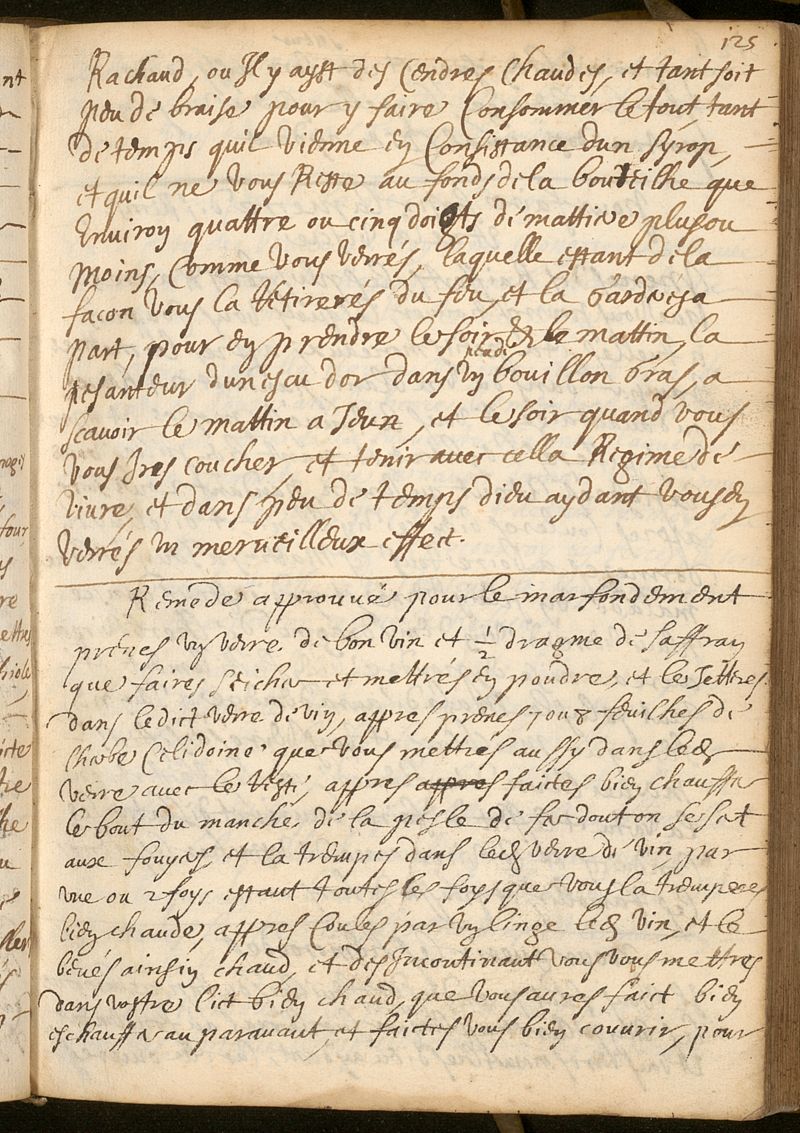 125
Rachaud, ou Il y ayst des Cendres Chaudes, et tant soit
peu de braise pour y faire Consommer le tout, tant
de temps quil vienne en Consistance dun syrop,
et quil ne vous Reste au fonds de la bouteilhe que
Environ quattre ou cinq doigts de mattiere plus ou
moins, Comme vous verrés, laquelle estant de la
facon vous la retirerés du feu, et la garderés a
part, pour en prendre le soir & le mattin, la
pesanteur dun escu dor dans un bouillon gras, a
scavoir le mattin a Jeun, et le soir quand vous
vous Ires coucher, et tenir avec cella Regime de
vivre, et dans peu de temps dieu aydant vous en
verrés un merveilleux effect.
Remede approuvé pour le marfondement
prenes un verre de bon vin et ½ dragme de saffran
que faires seicher et mettrés en poudre, et le Jetteres
dans ledict verre de vin, appres prenes 7 ou 8 feuilhes de
Cherbe Celidoine que vous mettres aussy dans led
verre avec le resti, appres appres faictes bien chauffer
le bout du manche de la pesle de fer dout on se sert
aux fouyers, et la trempes dans led verre de vin par
une ou 2 foys estant toutes les foys que vous la tremperes
bien chaude, appres Coules par un linge led vin, et le
beués ainsin chaud, et des Incontinant vous vous mettres
dans vostre lict bien chaud, que vous aures faict bien
eschauffer au paravant, et faictes vous bien couvrir, pour